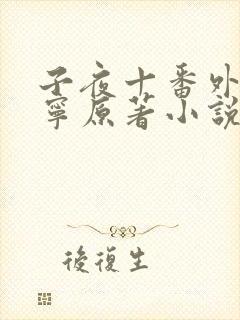 子夜十番外
寧原著小說
後復生